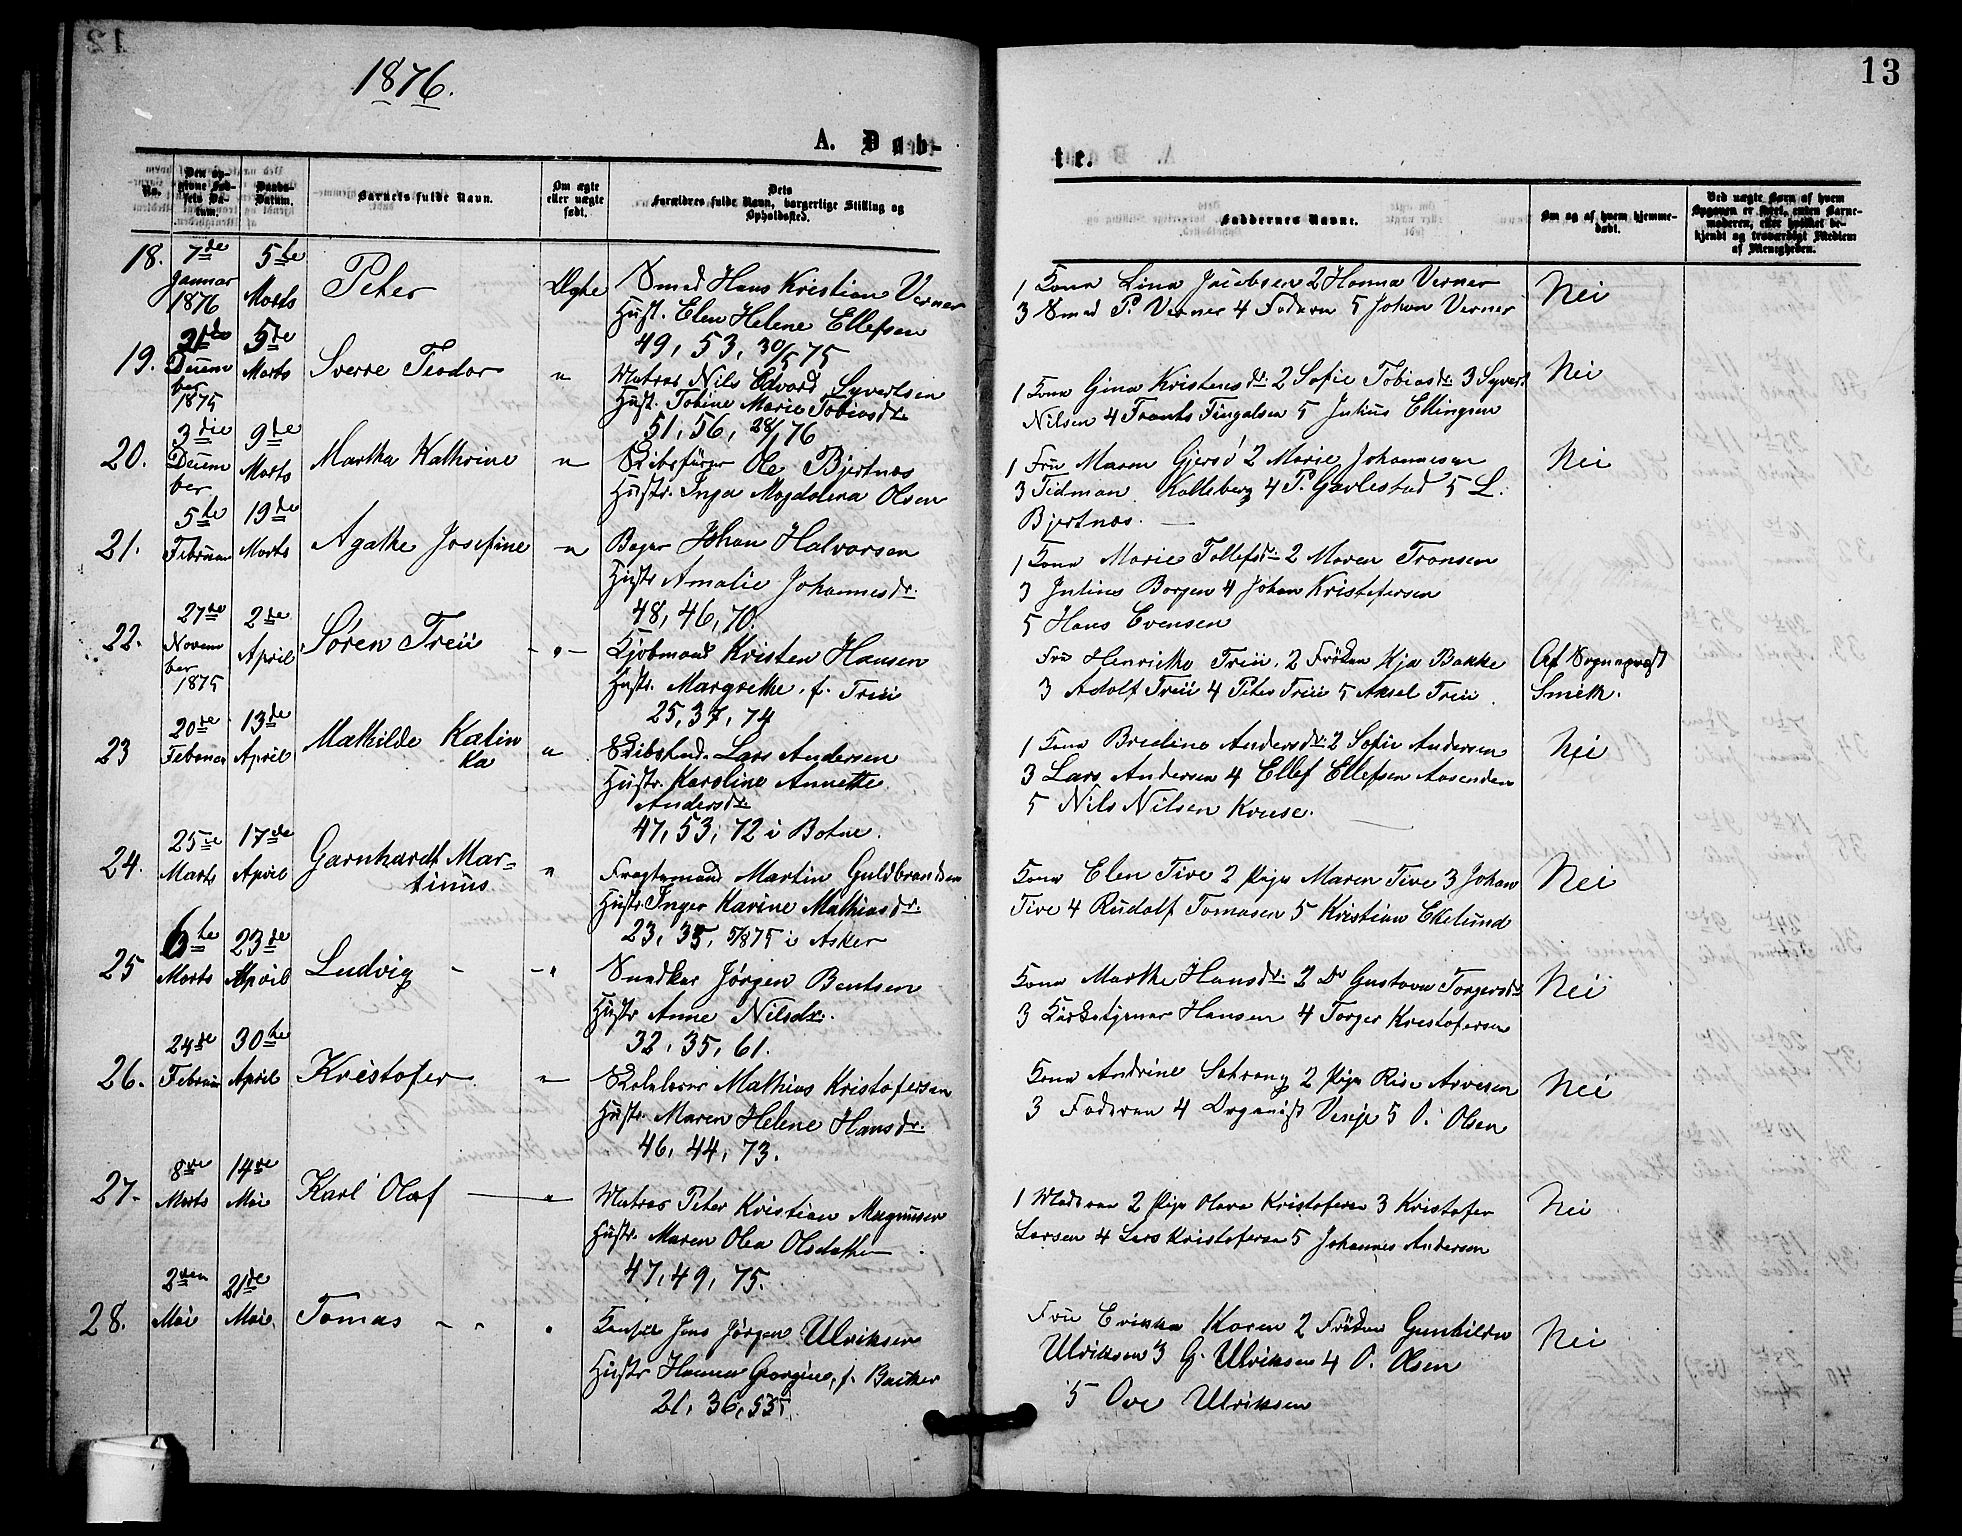 1876.
13
A. Døb-
te.
No.
Den opgivne Fødsels Datum.
Daabs-Datum.
Barnets fulde Navn.
Om ægte eller uægte født.
Dets Forældres fulde Navn, borgerlige Stilling og Opholdsted.
Faddernes Navne.
Om og af hvem hjemmedøbt.
Ved uægte Børn af hvem Opgaven er skeet, enten Barnemoderen, eller hvilket bekjendt og troværdigt Medlem af Menigheden.
18. 7de Januar 1876 5te Marts Peter Ægte Smed Hans Kristian Verner
Hust. Elen Helene Ellefsen
49, 53, 30/5 75
1 Kona Lina Jacobsen 2 Hanna Verner
3 Smed P. Verner 4 Faderen 5 Johan Verner
Nei
19. 21de Decem ber 1875 5te Marts Sverre Teodor " Matros Nils Edvard Syvertsen
Hust. Tobine Marie Tobiasdr.
51, 56, 28/1 76
1 Kona Gina Kristensdr. 2 Sofie Tobiasdr. 3 Syvert
Nilsen 4 Frants Fingalsen 5 Julius Ellingsen
Nei
20. 3die Decem ber 9de Marts Martha Kathrine " Skibsfører Ole Bjertnæs
Hustr. Inga Magdalena Olsen
1 Frü Maren Gjersö 2 Marie Johannesen
3 Tidman Kolleberg 4 P. Gavlestad 5 L.
Bjertnæs.
Nei
21. 5te Februar 19de Marts Agathe Josefine " Bager Johan Halvorsen
Hustr Amalie Johannesdr.
48, 46, 70.
1 Kona Marie Tollefsdr. 2 Maren Transen
3 Julius Borgen 4 Johan Kristofersen
5 Hans Evensen
22. 27de Novem ber 1875 2de April Søren Treü " Kjøbmand Kristen Hansen
Hustr. Margrethe f. Treü
25, 37, 74
Frü Henrikke Treü, 2 Frøken Kja Bakke
3 Adolf Treü 4 Peter Treü 5 Aksel Treü
Af Sognepræst
Smith.
23 20de Februar 13de April Mathilde Katin
ka " Skibstmd. Lars Andersen
Hustr. Karoline Annette
Andersdr.
47, 53, 72 i Botne.
1 Kona Bredine Andersdr. 2 Sofie Andersen
3 Lars Andersen 4 Ellef Ellefsen Aasenden
5 Nils Nilsen Kruse.
Nei
24. 25de Marts 17de April Garnhardt Mar-
tinüs " Fragtemand Martin Guldbrandsen
Hustr Inger Karine Mathiasdr.
23, 35, 5/8 75 i Asker
Kona Elen Tive 2 Pige Maren Tive 3 Johan
Tive 4 Rudolf Tomasen 5 Kristian Ekelund
Nei
25 6te Marts 23de April Ludvig " Snedker Jørgen Bentsen
Hustr Anne Nilsdr.
32, 35, 61.
Kona Marthe Hansdr. 2 Do Gustava Torgersdr
3 Kirketjener Hansen 4 Torger Kristofersen
Nei
26. 24de Februar 30te April Kristofer " Skolelærer Mathias Kristofersen
Hustr. Maren Helene Hansdr.
46, 44, 73.
Kona Andrine Solvang 2 Pige Rise Arvesen
3 Faderen 4 Organist Venje 5 O. Olsen
Nei
27. 8de Marts 14de Mai Karl Olaf " Matros Peter Kristian Magnusen
Hustr. Maren Olea Olsdatter
47, 49, 75.
1 Moderen 2 Pige Olava Kristofersen 3 Kristofer
Larsen 4 Lars Kristofersen 5 Johannes Andersen
Nei
28. 2den Mai 21de Mai. Tomas " Konsul Jens Jørgen Ulriksen
Hustr Hanna Georgine, f. Bacher
21, 36, 55.
Frü Erikka Koren 2 Frøken Gunhilda
Ulriksen 3 G. Ulriksen 4 O. Olsen
5 Ove Ulriksen
Nei